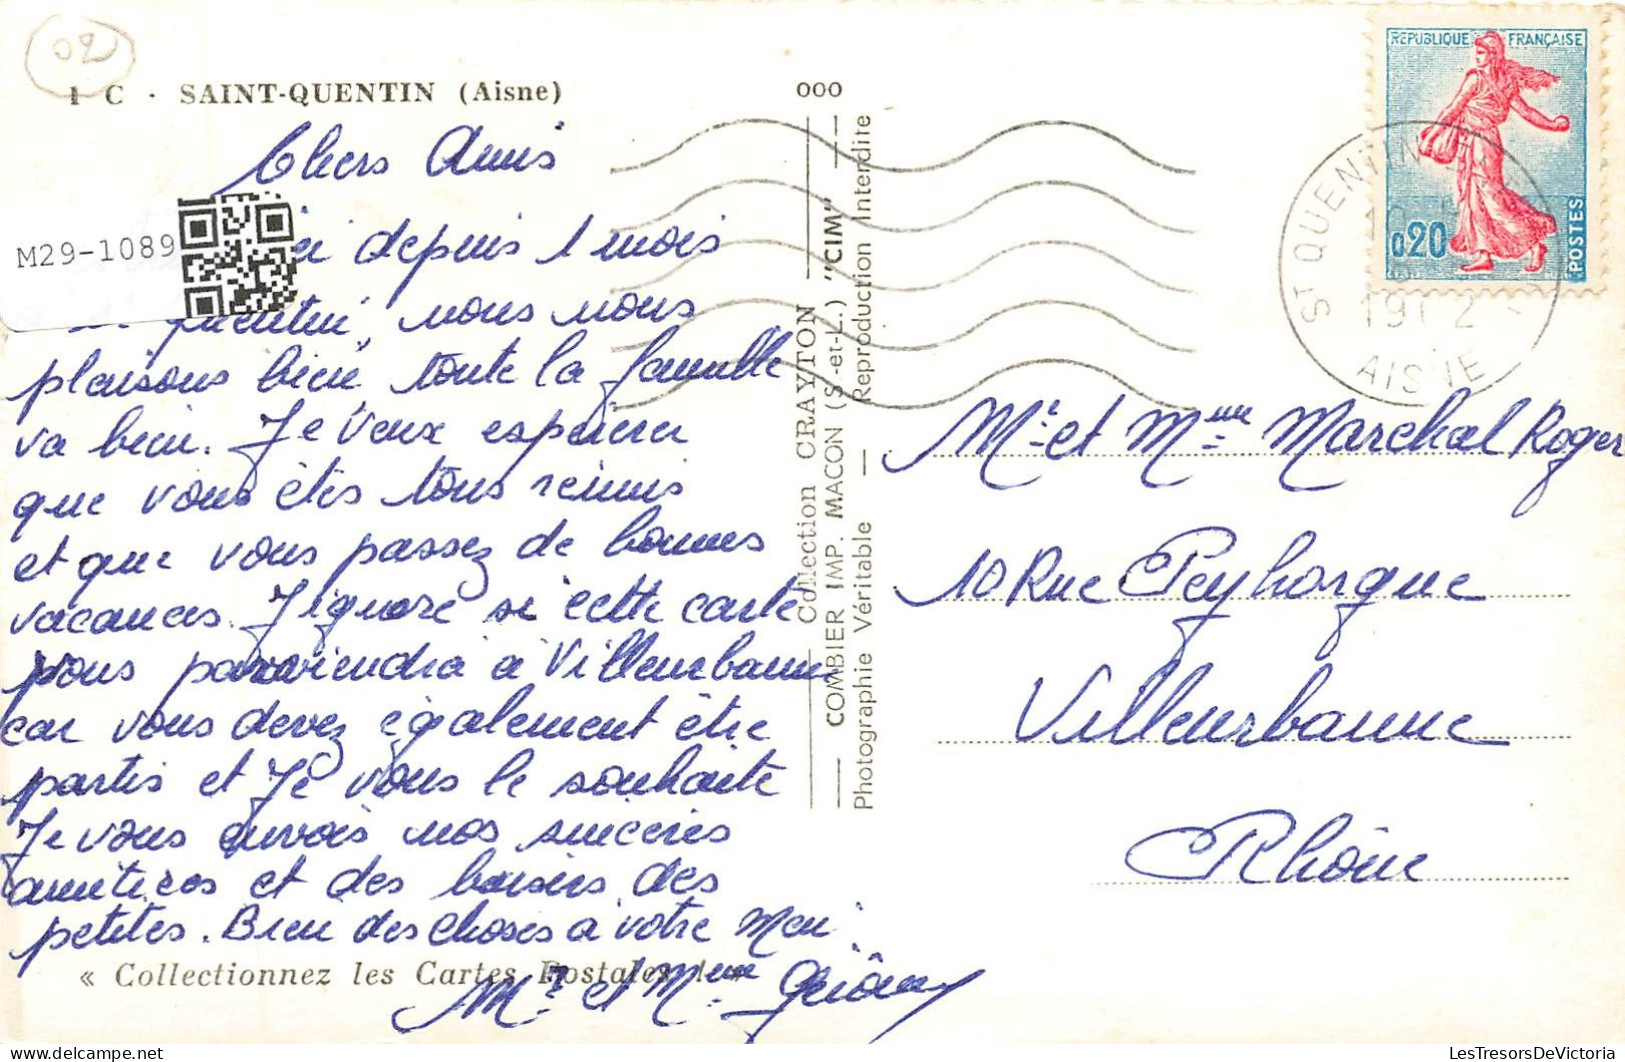 02
1 C - SAINT-QUENTIN (Aisne)
Chers Amis
M29-1089
ici depuis 1 mois
Quentin, nous nous
plaisons bien toute la famille
va bien. Je veux espérer
que vous êtes tous réunis
et que vous passez de bonnes
vacances. J'ignore si cette carte
vous parviendra à Villeurbanne
car vous devez également être
partis et Je vous le souhaite
Je vous envois nos sincères
amitiées et des baisers des
petites. Bien des choses à votre
« Collectionnez les Cartes Postales ! »
Mr et Mme
000
Collection CRAYTON
COMBIER IMP. MACON (S.-et-L.) "CIM"
Photographie Véritable — Reproduction Interdite
REPUBLIQUE FRANÇAISE
0,20
POSTES
ST QUENTIN
AISNE
Mr et Mme Marchal Roger
10 Rue Peyhorgue
Villeurbanne
Rhône
LesTresorsDeVictoria